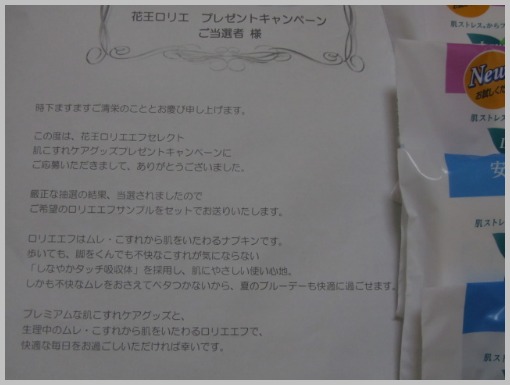 花王ロリエ プレゼントキャンペーン
ご当選者 様
時下ますますご清栄のこととお慶び申し上げます。
この度は、花王ロリエエフセレクト
肌こすれケアグッズプレゼントキャンペーンに
ご応募いただきまして、ありがとうございました。
厳正な抽選の結果、当選されましたので
ご希望のロリエエフサンプルをセットでお送りいたします。
ロリエエフはムレ・こすれから肌をいたわるナプキンです。
歩いても、脚をくんでも不快なこすれが気にならない
「しなやかタッチ吸収体」を採用し、肌にやさしい使い心地。
しかも不快なムレをおさえてベタつかないから、夏のブルーデーも快適に過ごせます。
プレミアムな肌こすれケアグッズと、
生理中のムレ・こすれから肌をいたわるロリエエフで、
快適な毎日をお過ごしいただければ幸いです。
肌ストレス。からフ
New
お試しくだ
肌ストレス
安
肌ストレ
肌スト